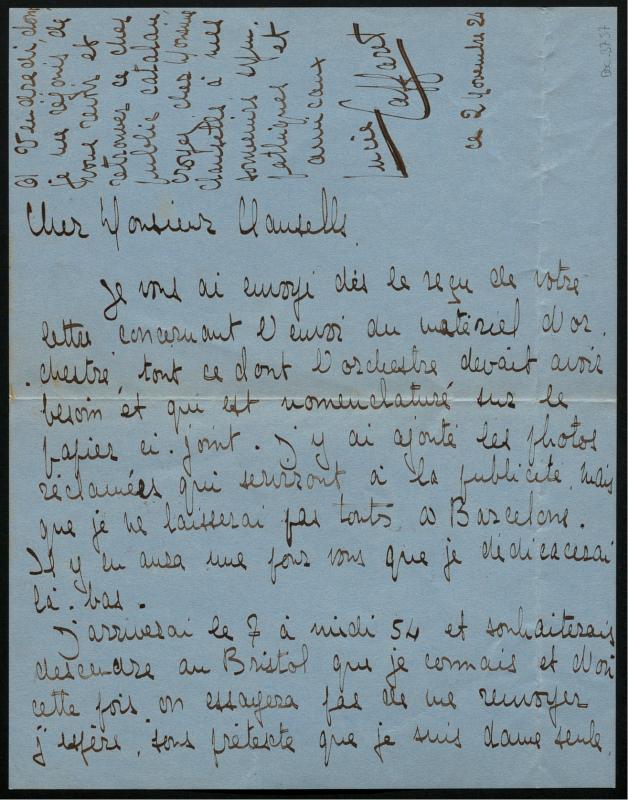 Cher Monsieur Clausells,
Je vous ai envoyé dès le reçu de votre
lettre concernant l'envoi du matériel d'or.
chestre, tout ce dont l'orchestre devait avoir
besoin et qui est nomenclaturé sur le
papier ci-joint. J'y ai ajouté les photos
réclamées qui serviront à la publicité, mais
que je ne laisserai pas toutes à Barcelone.
Il y en aura une pour vous que je dédicacerai
là-bas.
J'arriverai le 7 à midi 54 et souhaiterais
descendre au Bristol que je connais et d'où
cette fois on essayera pas de me renvoyer
j'espère, sous prétexte que je suis dame seule.
et Vendredi, donc
je me réjouis de
vous revoir et
retrouver ce cher
public catalan,
croyez cher Monsieur
Clausells à mes
souvenirs
et
amicaux
Lucie Caffaret
ce 2 Novembre 24
Doc. 3737